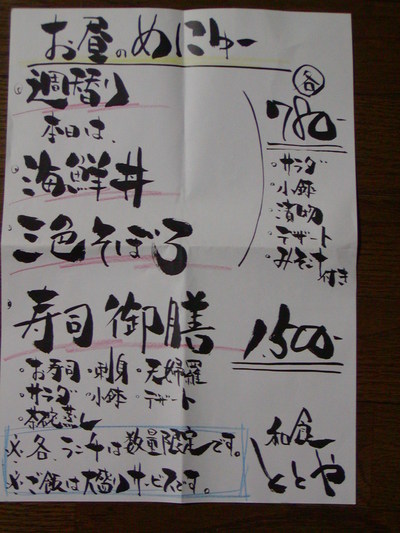 お昼のめにゅー
週替り
本日は、
海鮮丼
三色そぼろ
各
780-
・サラダ
・小鉢
・漬物
・デザート
・みそ汁付き
寿司御膳
1,500-
・お寿司・刺身・天婦羅
・サラダ・小鉢・デザート
・茶碗蒸し
※各ランチは数量限定です。
※ご飯は大盛りサービスです。
和食
ととや